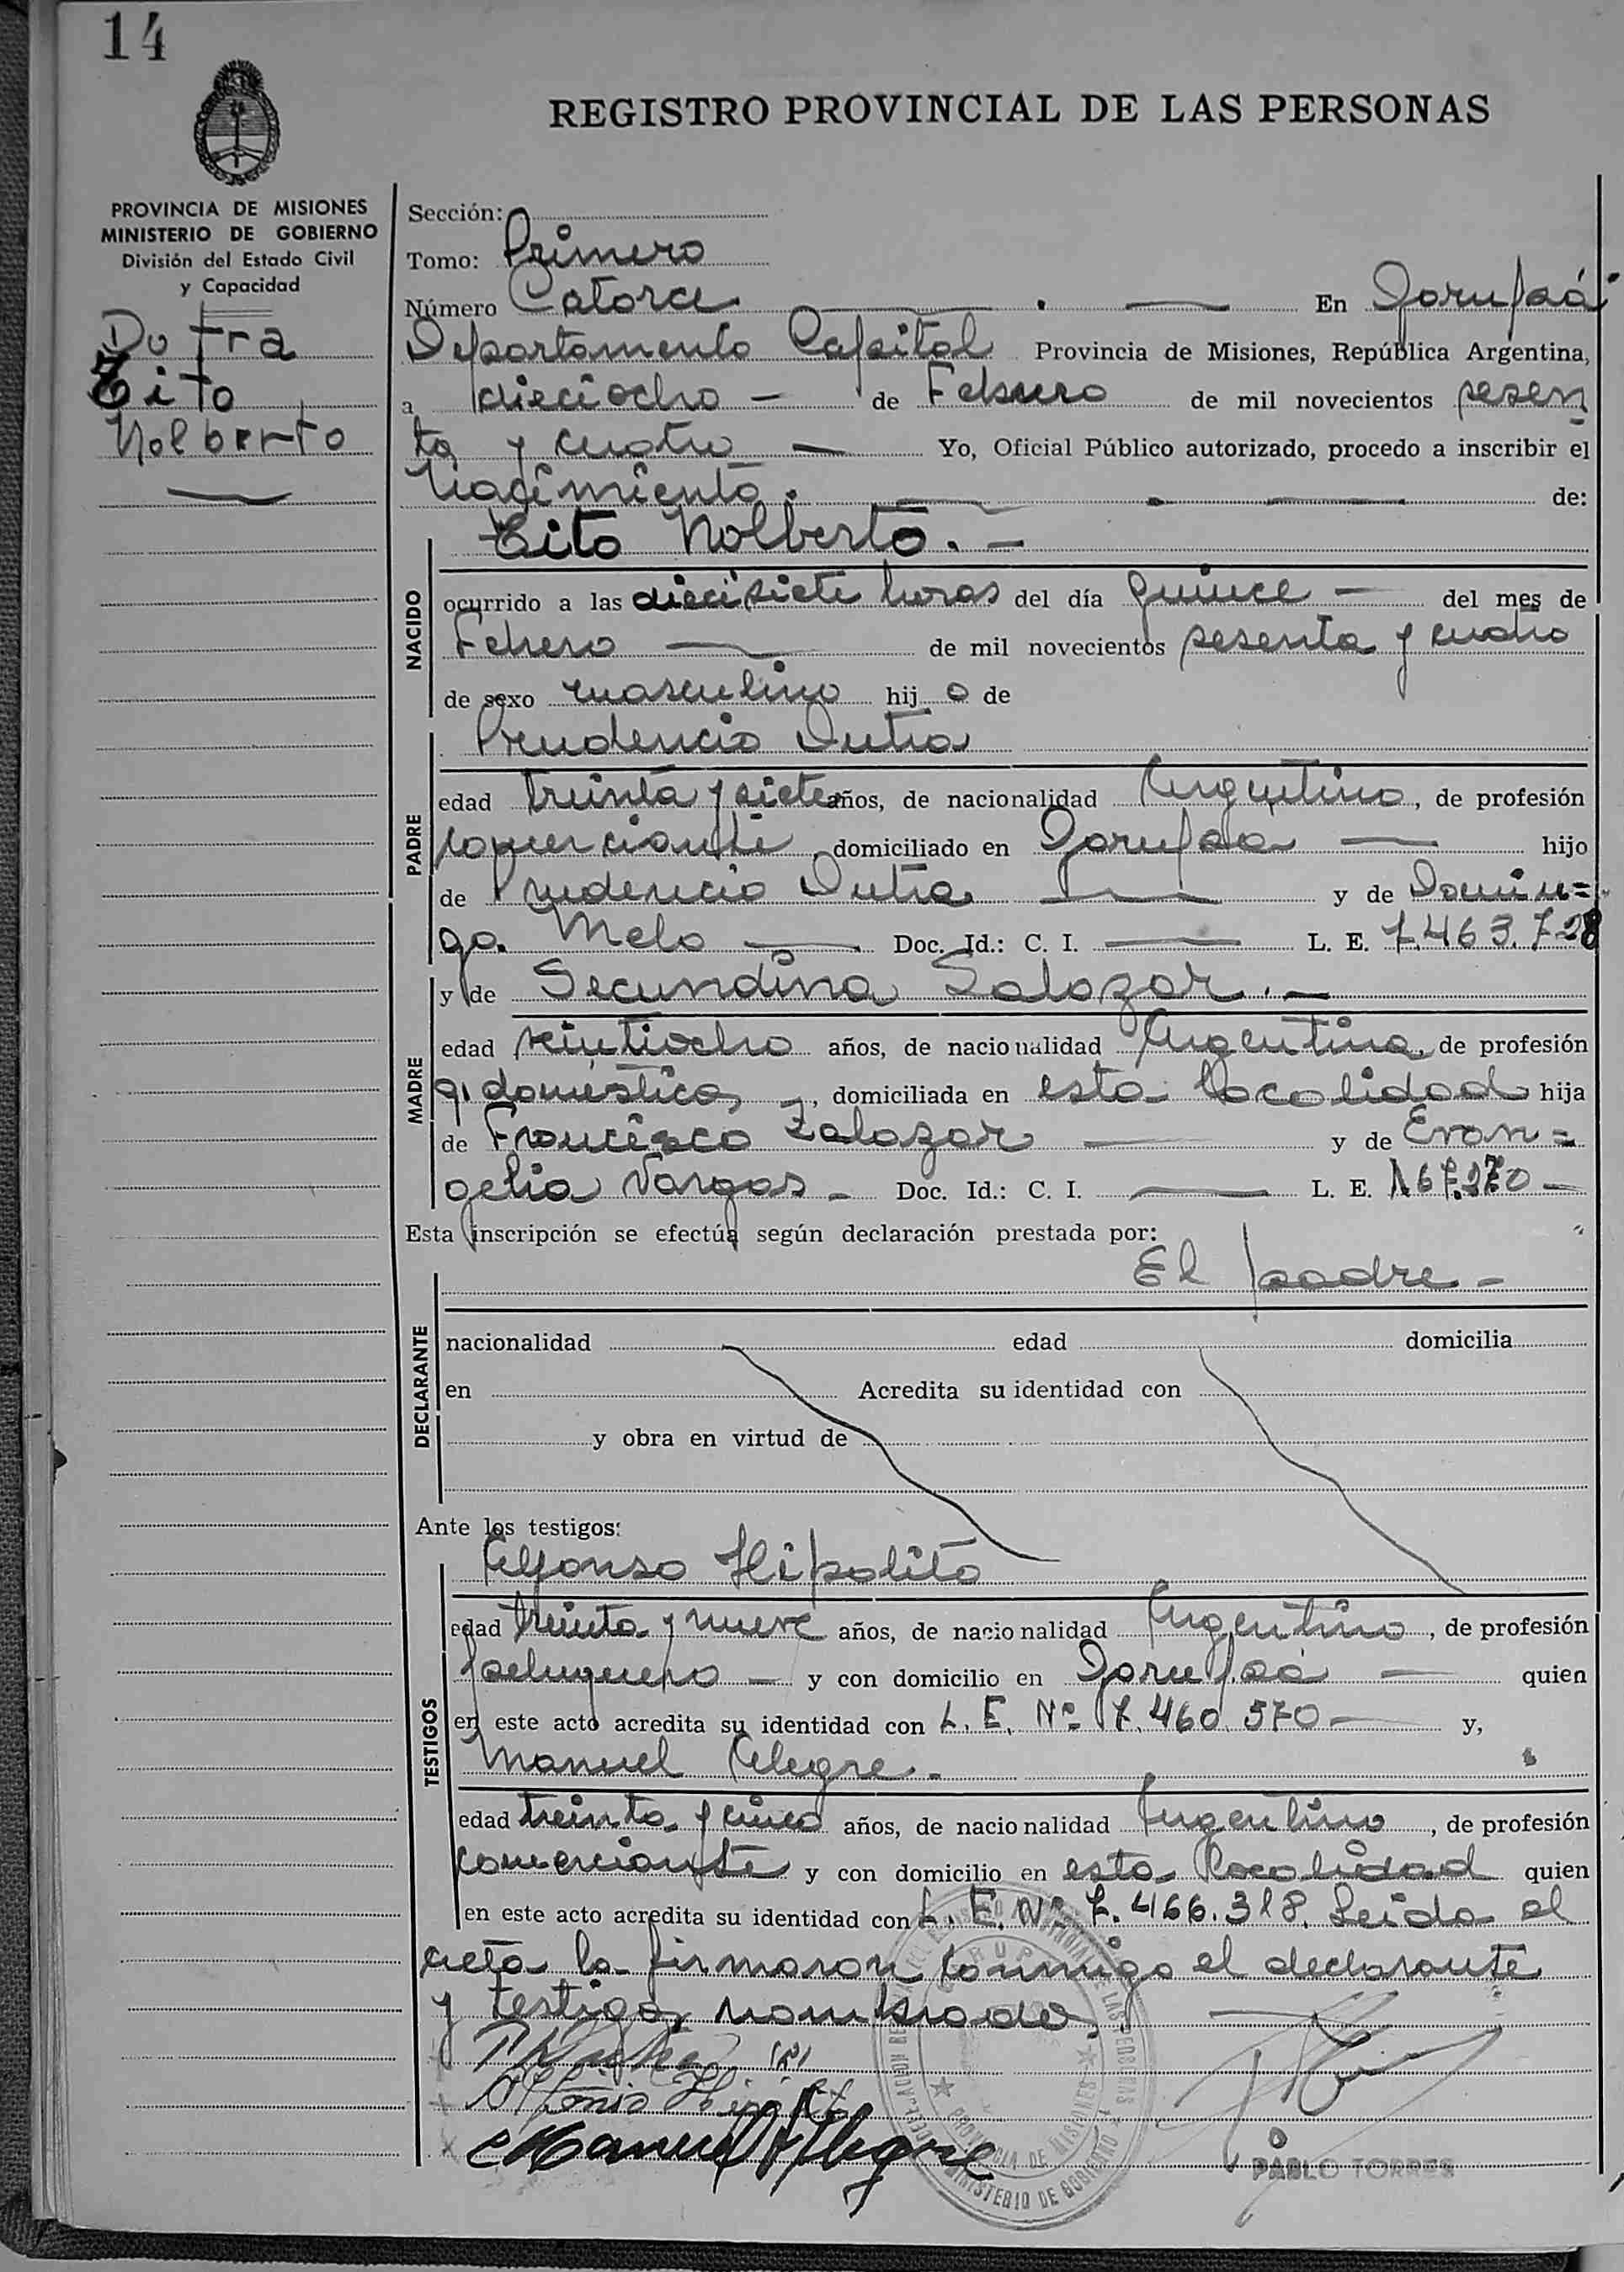 14
REGISTRO PROVINCIAL DE LAS PERSONAS
PROVINCIA DE MISIONES
MINISTERIO DE GOBIERNO
División del Estado Civil
y Capacidad
Dutra
Tito
Nolberto
Sección:
Tomo: Primero
Número Catorce En Garupá
Departamento Capital Provincia de Misiones, República Argentina,
a dieciocho - de Febrero de mil novecientos sesen
ta y cuatro — Yo, Oficial Público autorizado, procedo a inscribir el
Nacimiento. de:
Tito Nolberto. -
NACIDO
ocurrido a las diecisiete horas del día quince - del mes de
Febrero — de mil novecientos sesenta y cuatro
de sexo masculino hij o de
PADRE
Prudencio Dutra
edad treinta y siete años, de nacionalidad Argentino, de profesión
comerciante, domiciliado en Garupá — hijo
de Prudencio Dutra — y de Domin=
ga Melo — Doc. Id.: C. I. — L. E. 7.463.728
MADRE
y de Secundina Zalazar. -
edad veintiocho años, de nacionalidad Argentina, de profesión
q. domésticos, domiciliada en esta localidad hija
de Francisco Zalazar — y de Evan=
gelia Vargas - Doc. Id.: C. I. — L. E.
Esta inscripción se efectúa según declaración prestada por:
El padre -
DECLARANTE
nacionalidad edad domicilia
en Acredita su identidad con
y obra en virtud de
Ante los testigos:
TESTIGOS
Alfonso Hipolito
edad treinta y nueve años, de nacionalidad Argentino, de profesión
peluquero - y con domicilio en Garupá — quien
en este acto acredita su identidad con L. E. Nº 7.460.570 — y,
Manuel Alegre. -
edad treinta y cinco años, de nacionalidad Argentino, de profesión
comerciante y con domicilio en esta localidad quien
en este acto acredita su identidad con L. E. Nº 7.466.318. Leida el
acta la firmaron conmigo el declarante
y testigos nombrados.
Alfonso Hipolito
Manuel Alegre
PROVINCIA DE MISIONES
MINISTERIO DE GOBIERNO
PABLO TORRES